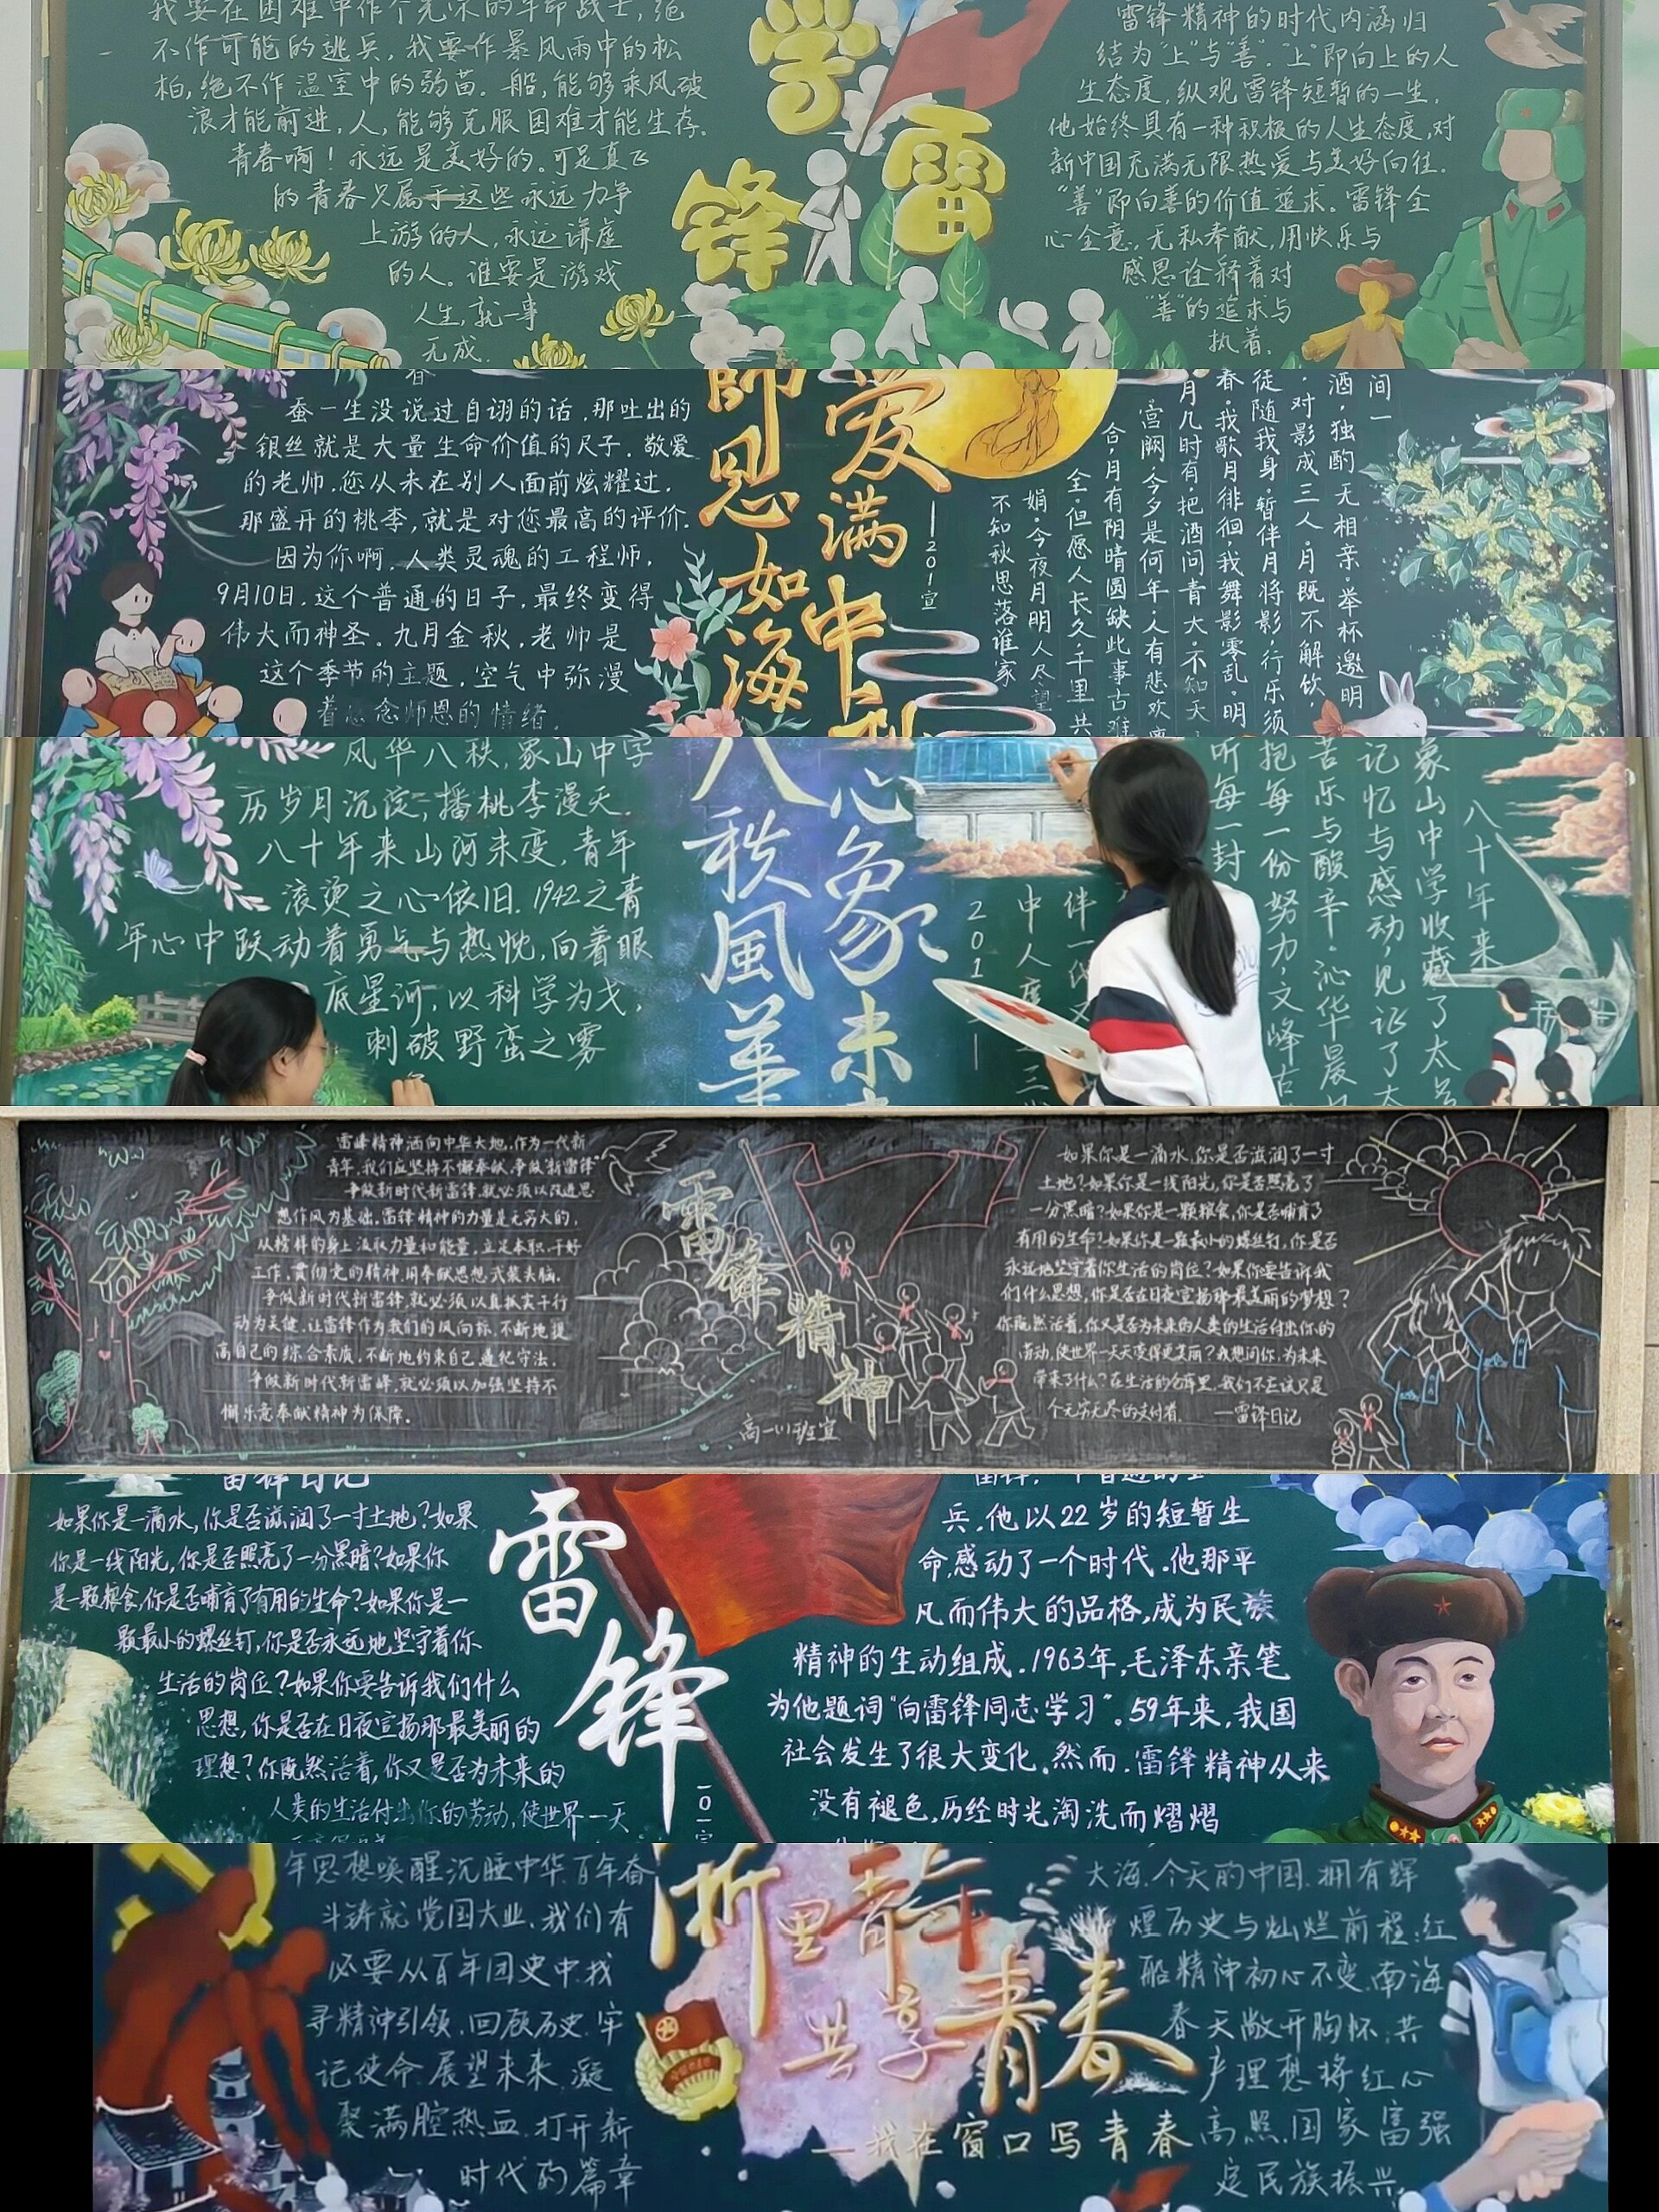 我要在困难中作个光荣的革命战士,绝
不作可能的逃兵,我要作暴风雨中的松
柏,绝不作温室中的弱苗.船,能够乘风破
浪才能前进,人,能够克服困难才能生存.
青春啊!永远是美好的.可是真正
的青春只属于这些永远力争
上游的人,永远谦虚
的人。谁要是游戏
人生,就一事
无成.
学
雷
锋
雷锋精神的时代内涵归
结为"上"与"善"."上"即向上的人
生态度,纵观雷锋短暂的一生,
他始终具有一种积极的人生态度,对
新中国充满无限热爱与美好向往.
"善"即向善的价值追求。雷锋全
心全意,无私奉献,用快乐与
感恩诠释着对
"善"的追求与
执着.
春
蚕一生没说过自诩的话,那吐出的
银丝就是大量生命价值的尺子.敬爱
的老师,您从未在别人面前炫耀过,
那盛开的桃李,就是对您最高的评价.
因为你啊,人类灵魂的工程师,
9月10日,这个普通的日子,最终变得
伟大而神圣。九月金秋,老师是
这个季节的主题,空气中弥漫
着感念师恩的情绪.
師恩如海
爱满中秋
—201宣
间一
酒,独酌无相亲.举杯邀明
,对影成三人.月既不解饮,
徒随我身.暂伴月将影,行乐须
春.我歌月徘徊,我舞影零乱.明
月几时有,把酒问青天.不知天
宫阙,今夕是何年.人有悲欢离
合,月有阴晴圆缺,此事古难
全.但愿人长久,千里共
娟.今夜月明人尽望
不知秋思落谁家
风华八秩,象山中学
历岁月沉淀,播桃李漫天.
八十年来山河未变,青年
滚烫之心依旧.1942之青
年心中跃动着勇气与热忱,向着眼
底星河,以科学为戈,
刺破野蛮之雾
八秩風華
心象未
八十年来
象山中学收藏了太多
记忆与感动,见证了太
苦乐与酸辛.沁华晨
抱每一份努力,文峰古
听每一封
伴一代又
中人度三
201
雷峰精神洒向中华大地,作为一代新
青年,我们应坚持不懈奉献,争做"新雷锋"
争做新时代新雷锋,就必须以改进思
想作风为基础.雷锋精神的力量是无穷大的,
从榜样的身上汲取力量和能量,立足本职,干好
工作,贯彻党的精神,用奉献思想武装头脑.
争做新时代新雷锋,就必须以真抓实干行
动为关键,让雷锋作为我们的风向标,不断地提
高自己的综合素质,不断地约束自己,遵纪守法.
争做新时代新雷峰,就必须以加强坚持不
懈乐意奉献精神为保障.
雷锋精神
高一(1)班宣
如果你是一滴水,你是否滋润了一寸
土地?如果你是一线阳光,你是否照亮了
一分黑暗?如果你是一颗粮食,你是否哺育了
有用的生命?如果你是一颗最小的螺丝钉,你是否
永远地坚守着你生活的岗位?如果你要告诉我
们什么思想,你是否在日夜宣扬那最美丽的梦想?
你既然活着,你又是否为未来的人类的生活付出你的
劳动,使世界一天天变得更美丽?我想问你,为未来
带来了什么?在生活的仓库里,我们不应该只是
个无穷无尽的支付者. —雷锋日记
雷锋日记
如果你是一滴水,你是否滋润了一寸土地?如果
你是一线阳光,你是否照亮了一分黑暗?如果你
是一颗粮食,你是否哺育了有用的生命?如果你是一
颗最小的螺丝钉,你是否永远地坚守着你
生活的岗位?如果你要告诉我们什么
思想,你是否在日夜宣扬那最美丽的
理想?你既然活着,你又是否为未来的
人类的生活付出你的劳动,使世界一天
雷锋
101宣
兵,他以22岁的短暂生
命,感动了一个时代.他那平
凡而伟大的品格,成为民族
精神的生动组成.1963年,毛泽东亲笔
为他题词"向雷锋同志学习"。59年来,我国
社会发生了很大变化。然而,雷锋精神从来
没有褪色,历经时光淘洗而熠熠
年思想唤醒沉睡中华.百年奋
斗铸就党国大业.我们有
必要从百年团史中找
寻精神引领.回顾历史.牢
记使命.展望未来.凝
聚满腔热血.打开新
时代的篇章
浙里青年
共享青春
—我在窗口写青春
大海.今天的中国.拥有辉
煌历史与灿烂前程:红
船精神初心不变.南海
春天敞开胸怀:共
产理想将红心
高照.国家富强
定民族振兴.